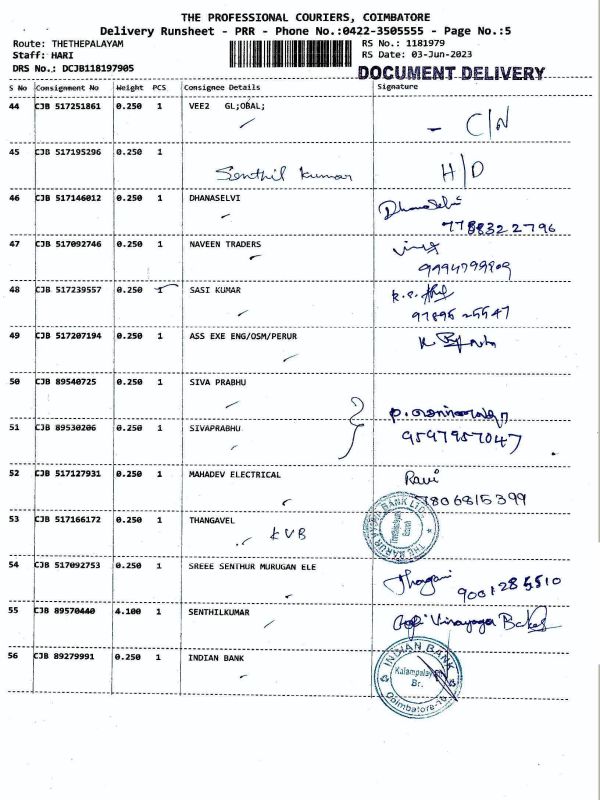 THE PROFESSIONAL COURIERS, COIMBATORE
Delivery Runsheet - PRR - Phone No.:0422-3505555 - Page No.:5
Route: THETHEPALAYAM RS No.: 1181979
Staff: HARI RS Date: 03-Jun-2023
DRS No.: DCJB118197905 DOCUMENT DELIVERY
S No Consignment No Weight PCS Consignee Details Signature
44 CJB 517251861 0.250 1 VEE2 GL;OBAL;
- C/N
45 CJB 517195296 0.250 1
Senthil Kumar H/D
46 CJB 517146012 0.250 1 DHANASELVI
Dhanaselvi
7788322796
47 CJB 517092746 0.250 1 NAVEEN TRADERS
48 CJB 517239557 0.250 1 SASI KUMAR
49 CJB 517207194 0.250 1 ASS EXE ENG/OSM/PERUR
50 CJB 89540725 0.250 1 SIVA PRABHU
51 CJB 89530206 0.250 1 SIVAPRABHU
9597957047
52 CJB 517127931 0.250 1 MAHADEV ELECTRICAL
Ravi
7806815399
53 CJB 517166172 0.250 1 THANGAVEL
KVB
54 CJB 517092753 0.250 1 SREEE SENTHUR MURUGAN ELE
9001285510
55 CJB 89570440 4.100 1 SENTHILKUMAR
Vinayaga
56 CJB 89279991 0.250 1 INDIAN BANK
INDIAN BANK
Kalampalayam
Br.